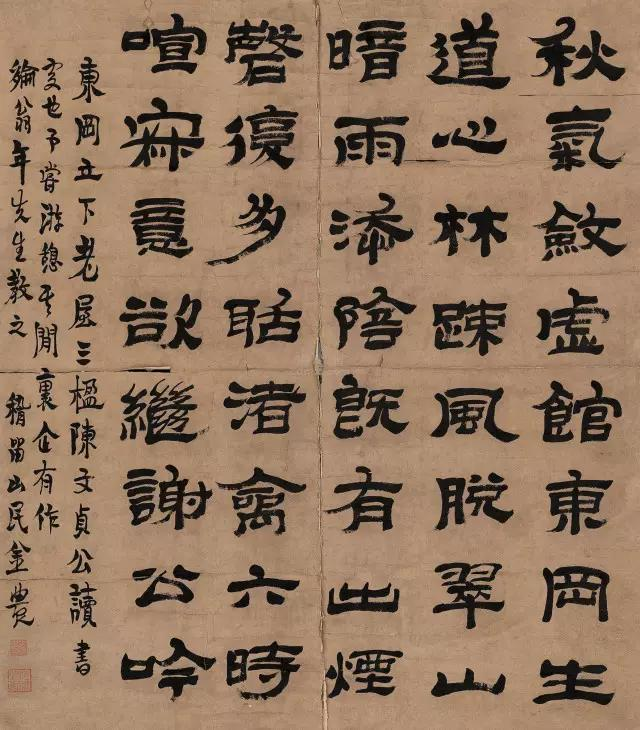 秋氣斂虛館東岡生
道心林疎風脫翠山
暗雨添陰既有出煙
磬復多聒渚禽六時
喧寂意欲繼謝公吟
東岡下老屋三楹陳文貞公讀書
處也予嘗游憩其閒褱企有作
綸翁年先生教之 稽留山民金農